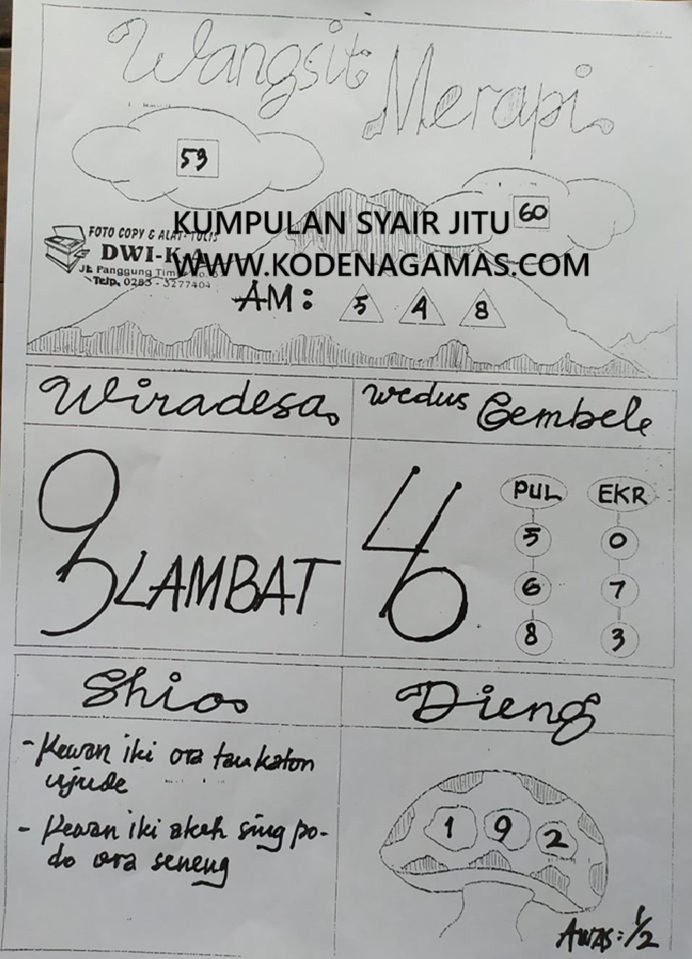 Wangsit
Merapi
53
60
KUMPULAN SYAIR JITU
FOTO COPY & ALAT TULIS
WWW.KODENAGAMAS.COM
DWI-KA
Jl. Panggung Timur No.
Telp. 0283 - 3277404
AM: 5 4 8
Wiradesa
wedus Gembele
9 LAMBAT
46
PUL EKR
5 0
6 7
8 3
Shio
Dieng
- Kewan iki ora tau katon
wjude
- Kewan iki akeh sing po-
do ora seneng
1 9 2
Awas: 1/2